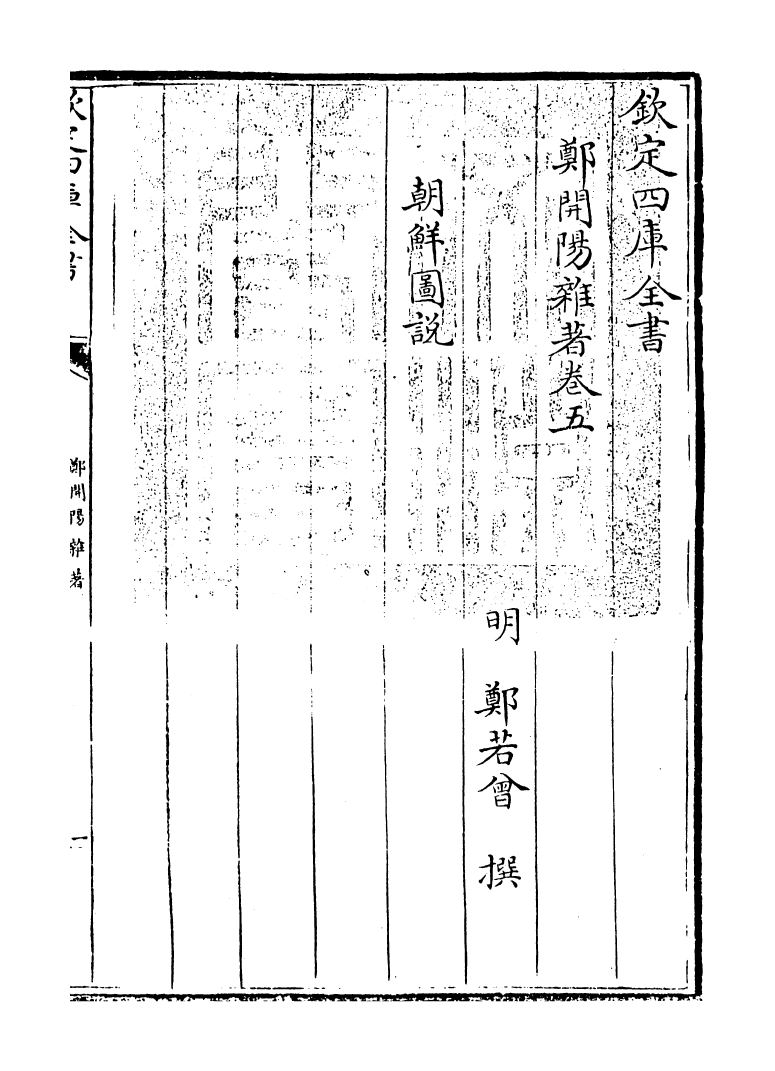 欽定四庫全書
鄭開陽雜著卷五
明 鄭若曾 撰
朝鮮圖說
欽定四庫全書
鄭開陽雜著
一